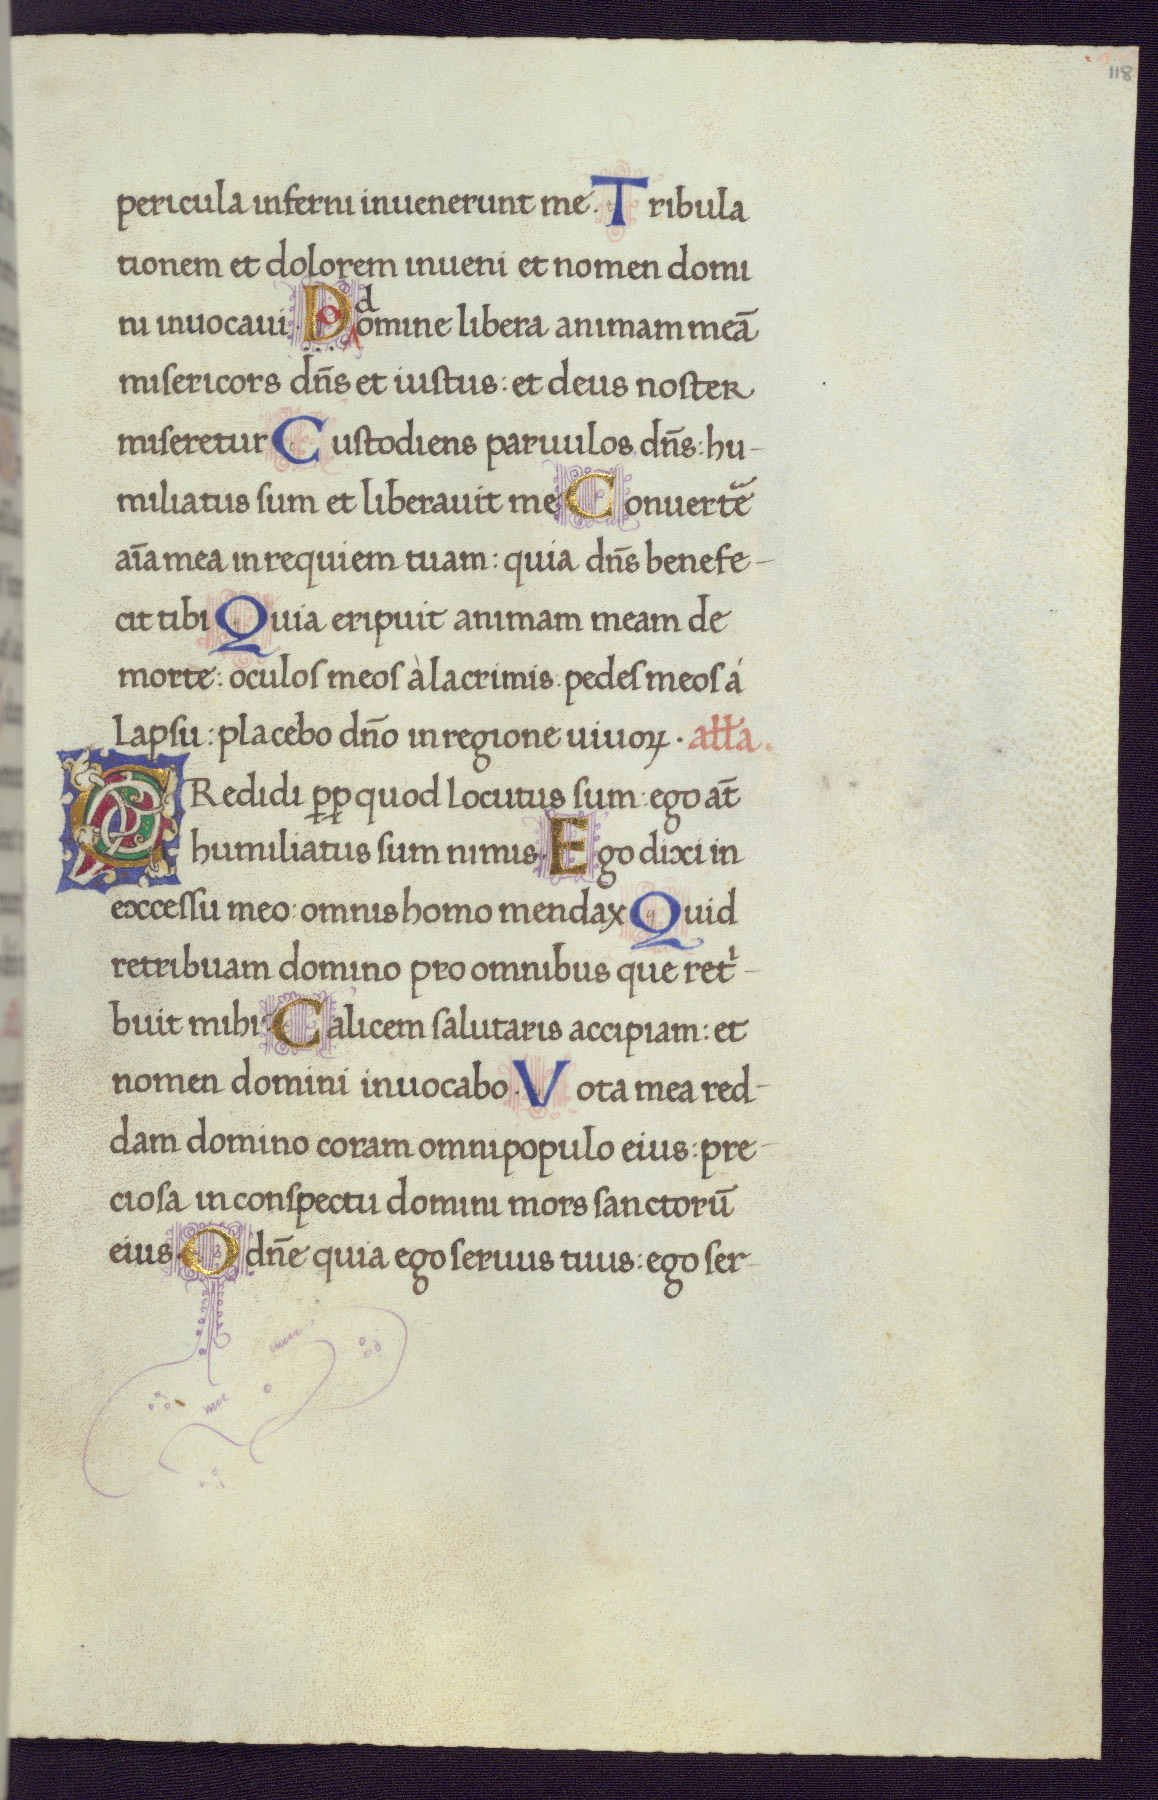 118
pericula inferni inuenerunt me. Tribula
tionem et dolorem inueni et nomen domi
ni inuocaui. O domine libera animam meā
misericors dn̄s et iustus: et deus noster
miseretur Custodiens paruulos dn̄s: hu-
miliatus sum et liberauit me Conuertē
aīa mea in requiem tuam: quia dn̄s benefe-
cit tibi Quia eripuit animam meam de
morte: oculos meos à lacrimis. pedes meos á
Lapsu: placebo dn̄o in regione uiuoꝝ. all̄a.
CRedidi ꝓꝓ quod locutus sum: ego at̄
humiliatus sum nimis. Ego dixi in
exccessu meo: omnis homo mendax Quid
retribuam domino pro omnibus que retⁱ-
buit mihi? Calicem salutaris accipiam: et
nomen domini inuocabo. Vota mea red-
dam domino coram omni populo eius: pre-
ciosa in conspectu domini mors sanctorū
eius. O dn̄e quia ego seruus tuus: ego ser-